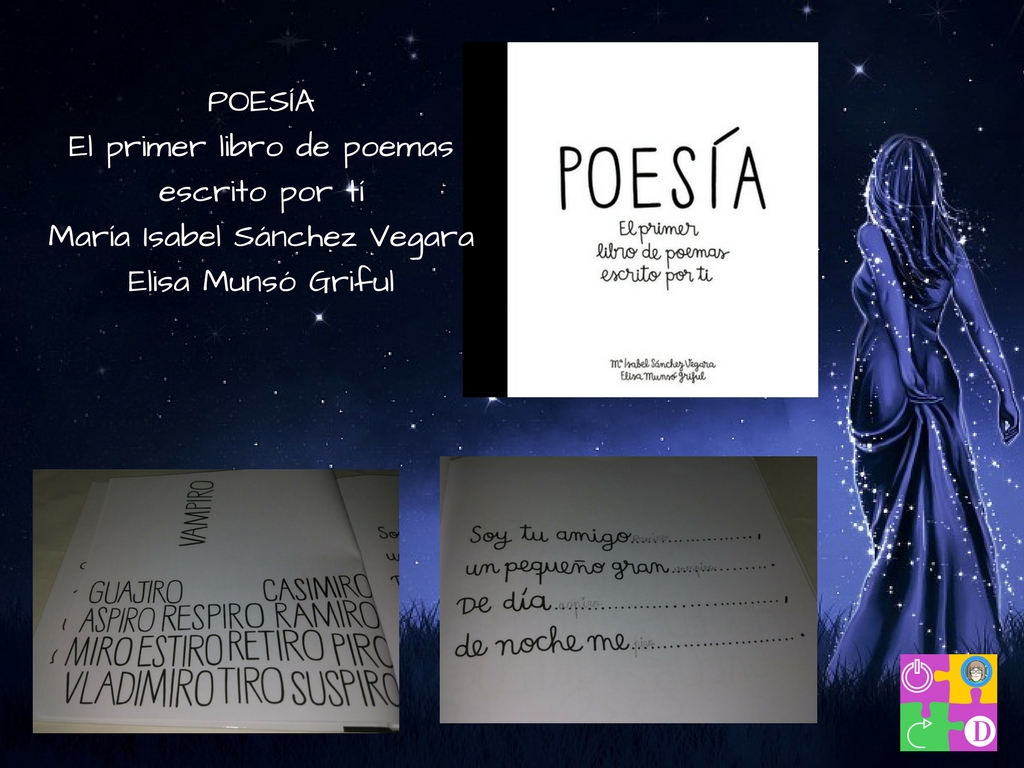 POESÍA
El primer libro de poemas
escrito por tí
María Isabel Sánchez Vegara
Elisa Munsó Griful
POESÍA
El primer
libro de poemas
escrito por ti
Mª Isabel Sánchez Vegara
Elisa Munsó Griful
VAMPIRO
GUAJIRO CASIMIRO
ASPIRO RESPIRO RAMIRO
MIRO ESTIRO RETIRO PIRO
VLADIMIRO TIRO SUSPIRO
So
Soy tu amigo....................,
un pequeño gran....................
De día....................,
de noche me....................
D